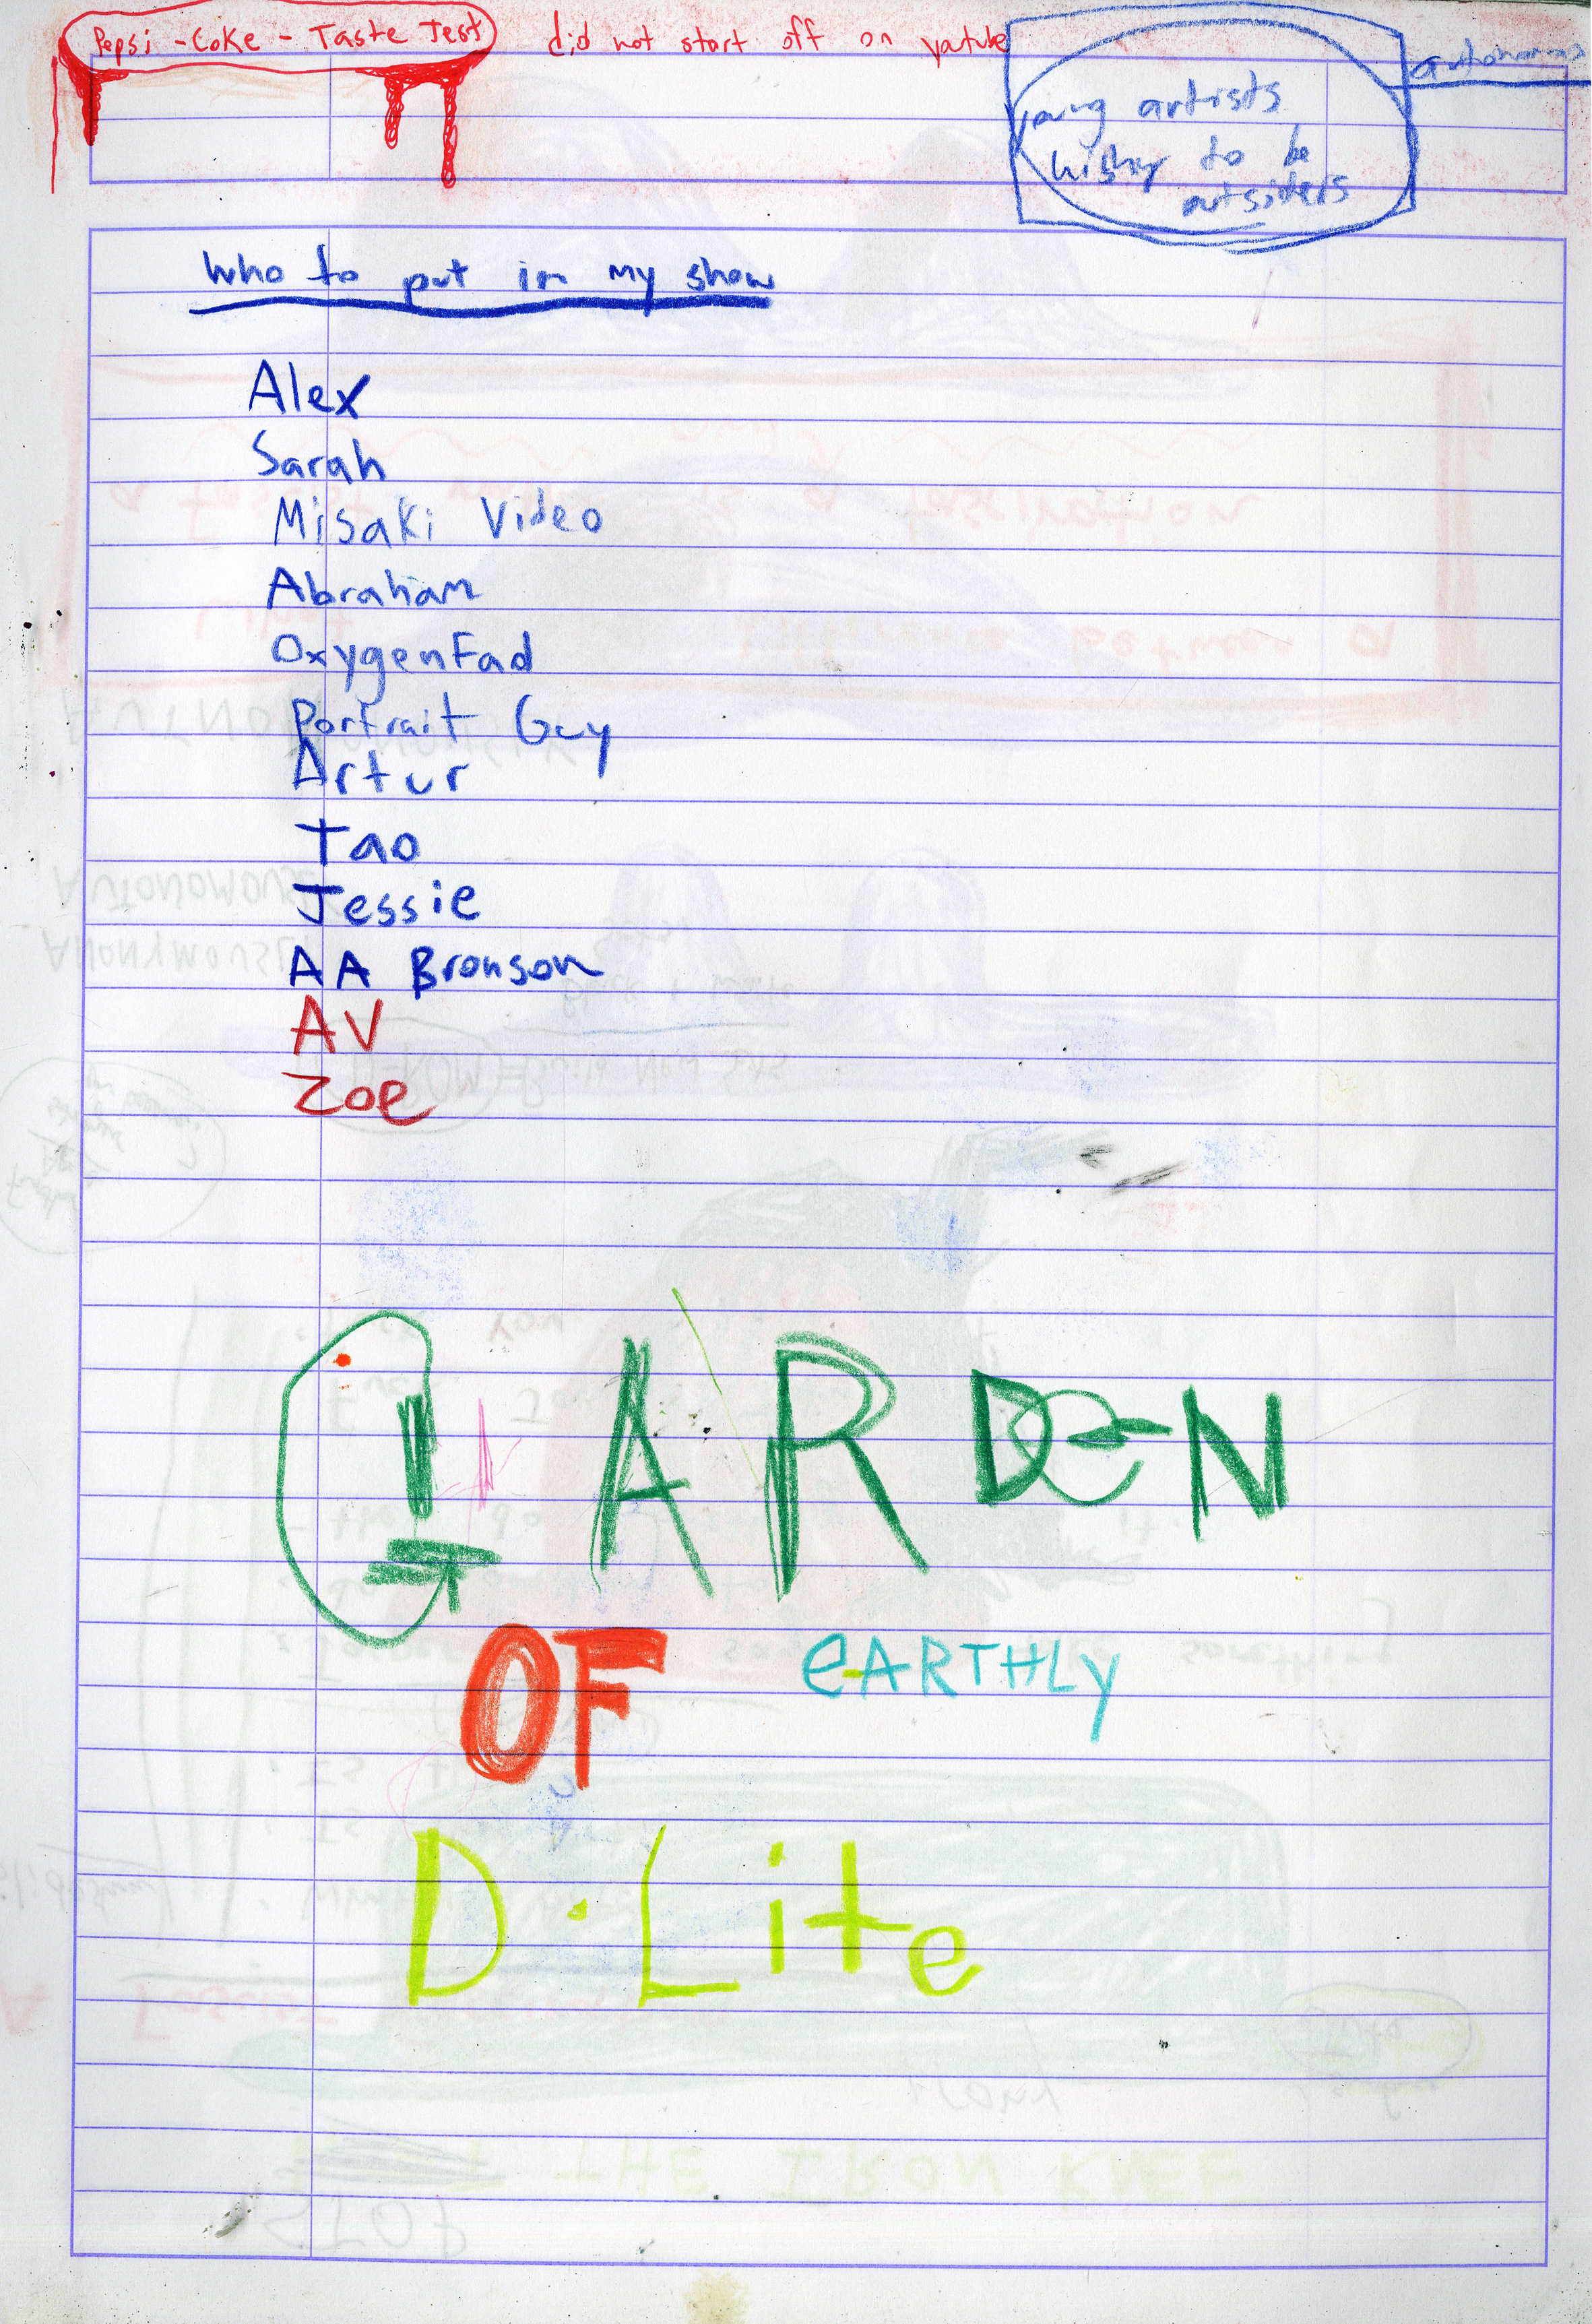 Pepsi - Coke - Taste Test did not start off on yatube
autonomous
young artists
wishing to be
outsiders
Who to put in my show
Alex
Sarah
Misaki Video
Abraham
OxygenFad
Portrait Guy
Artur
Tao
Jessie
AA Bronson
AV
Zoe
GARDEN
OF eARTHLy
D·Lite